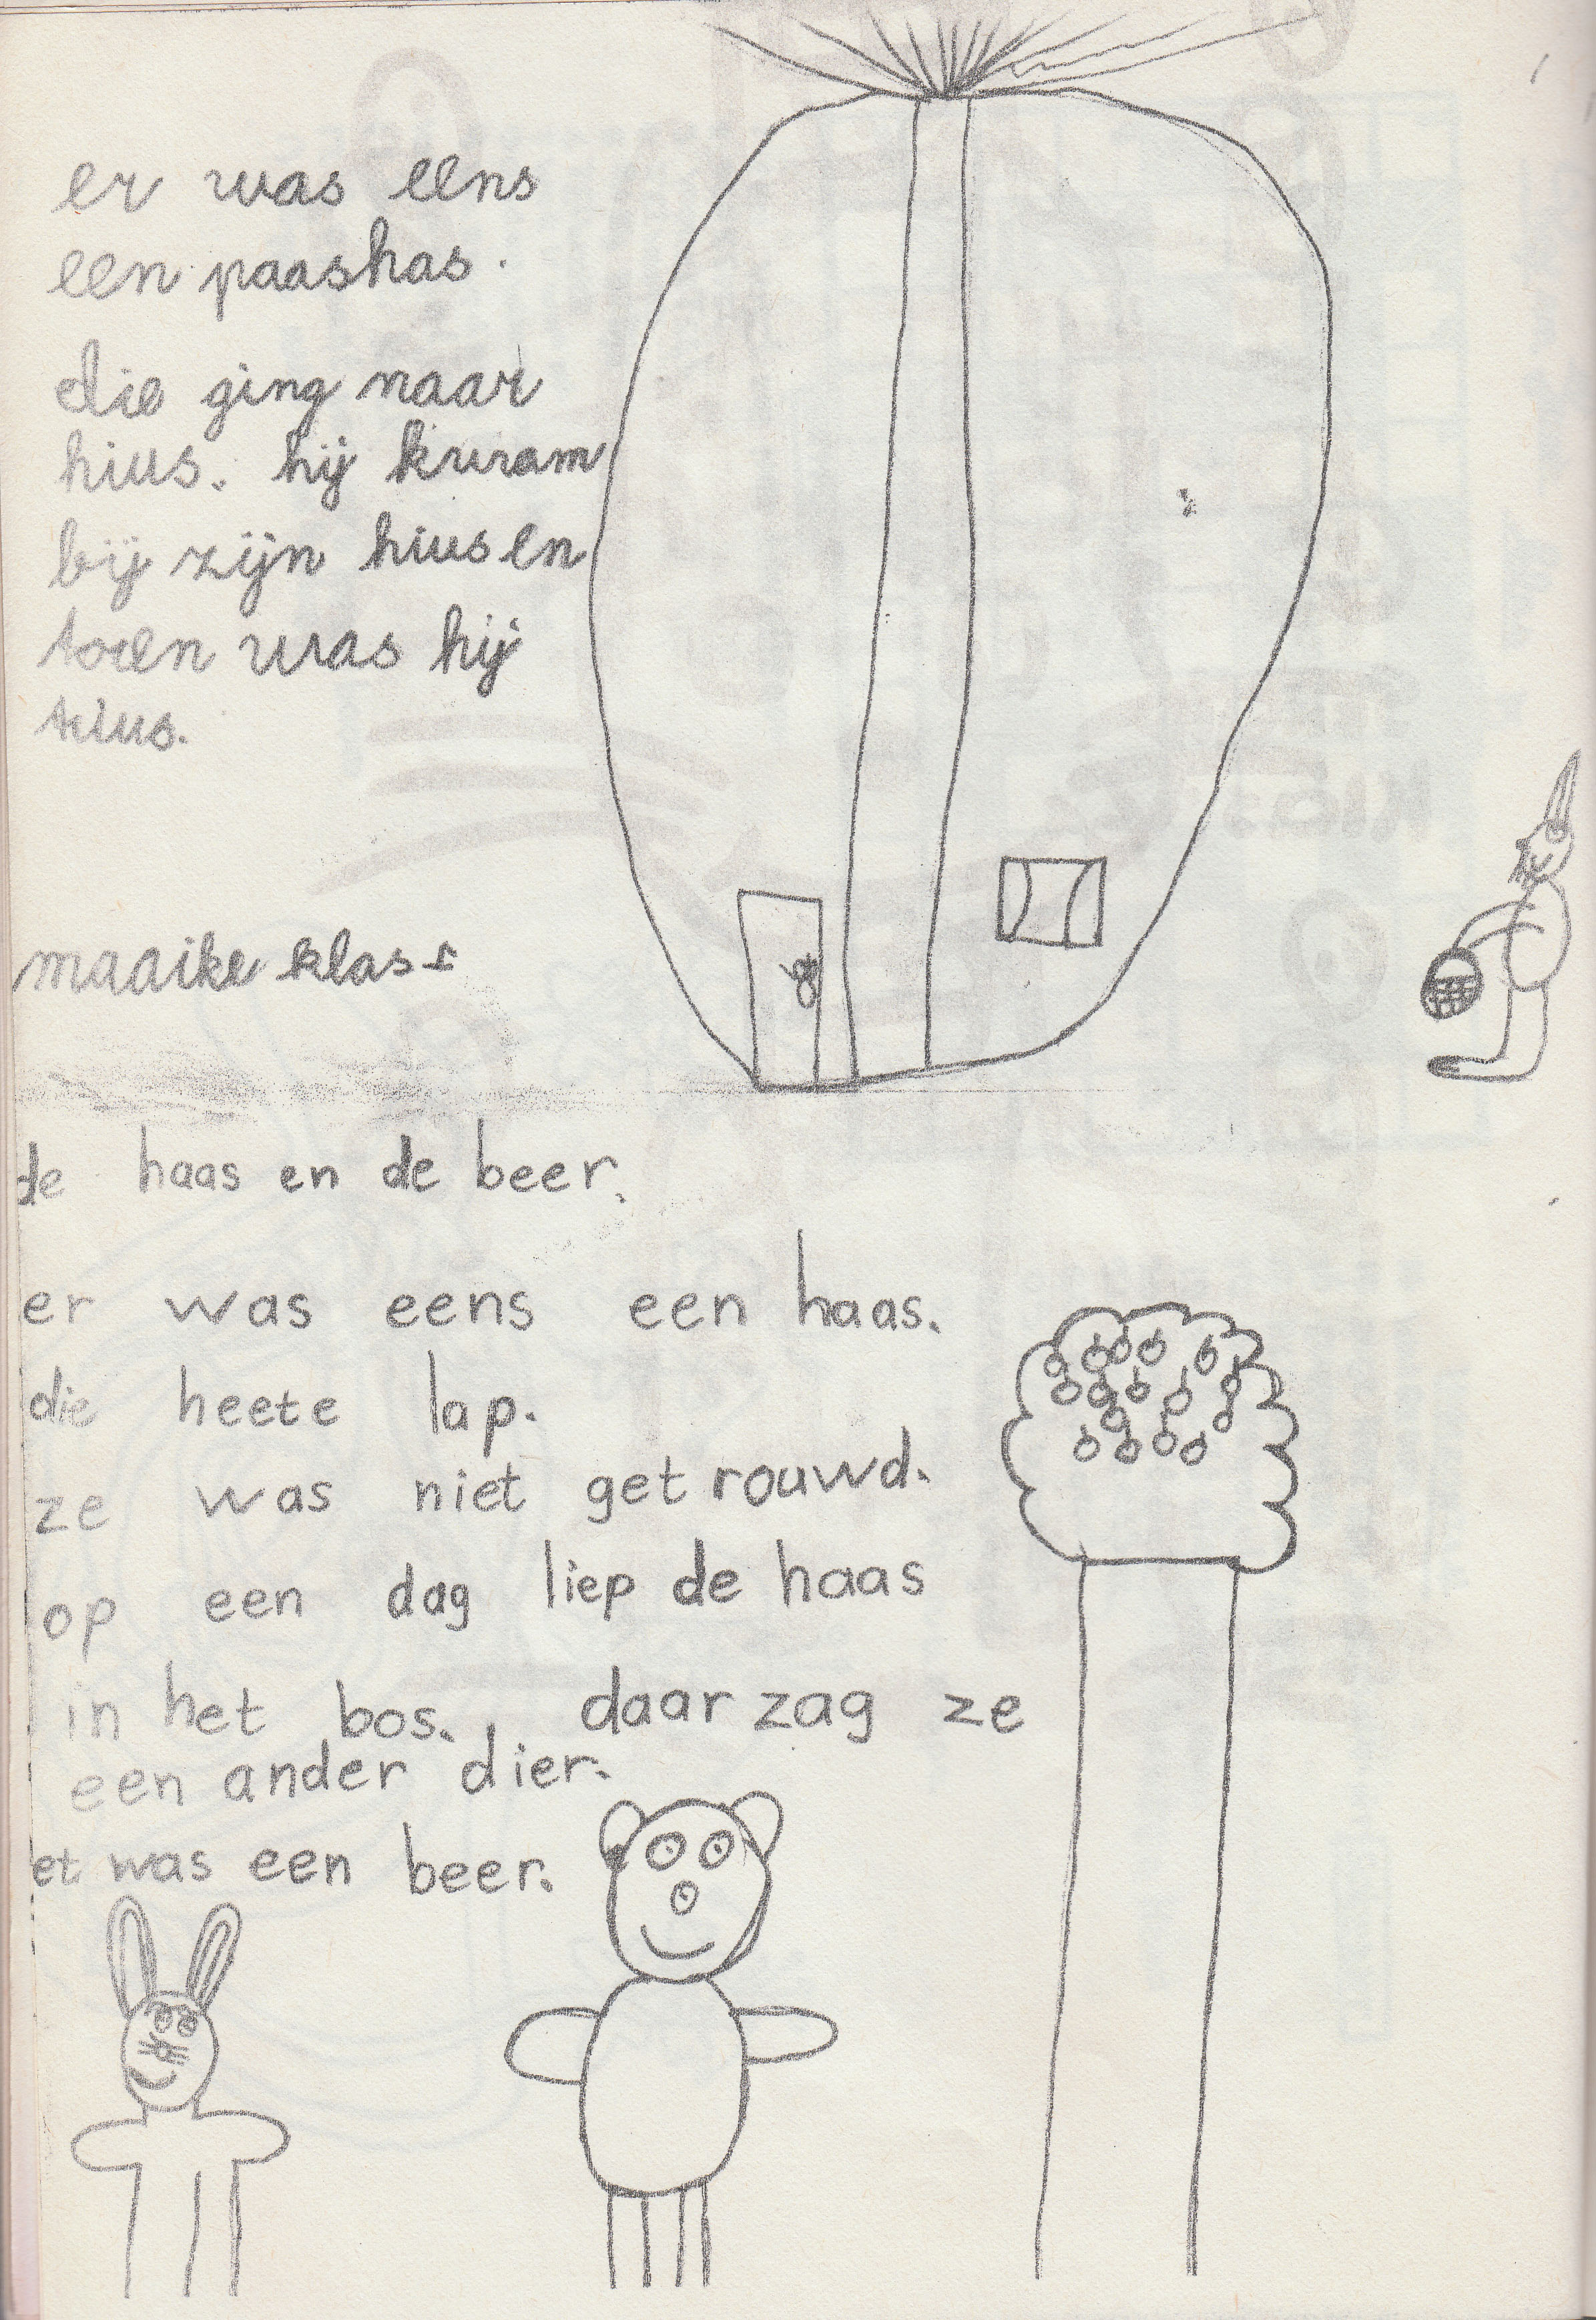 er was eens
een paashas.
die ging naar
hius. hij kwam
bij zijn hius en
toen was hij
tius.
maaike klas
de haas en de beer.
er was eens een haas.
die heete lap.
ze was niet getrouwd.
op een dag liep de haas
in het bos. daar zag ze
een ander dier.
et was een beer.